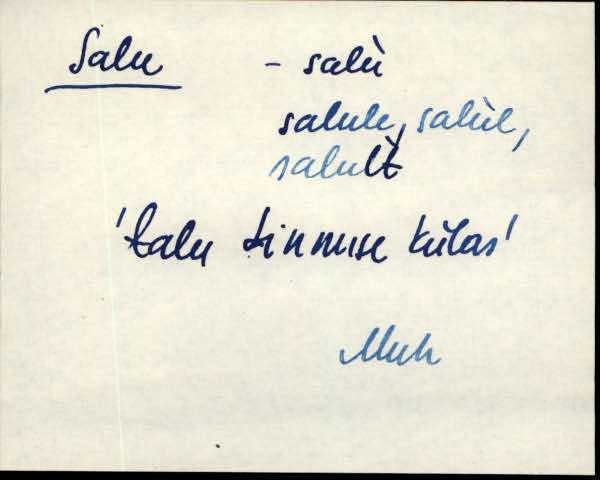 Salu - salù
salule, salùl,
salult
'talu Linnuse külas'
Muh